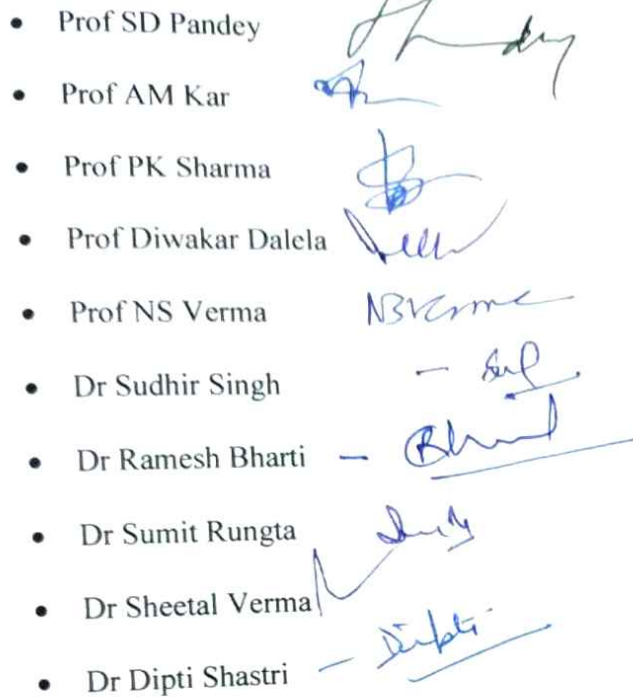 • Prof SD Pandey
• Prof AM Kar
• Prof PK Sharma
• Prof Diwakar Dalela
• Prof NS Verma NSVerma
• Dr Sudhir Singh –
• Dr Ramesh Bharti –
• Dr Sumit Rungta
• Dr Sheetal Verma
• Dr Dipti Shastri – Dipti